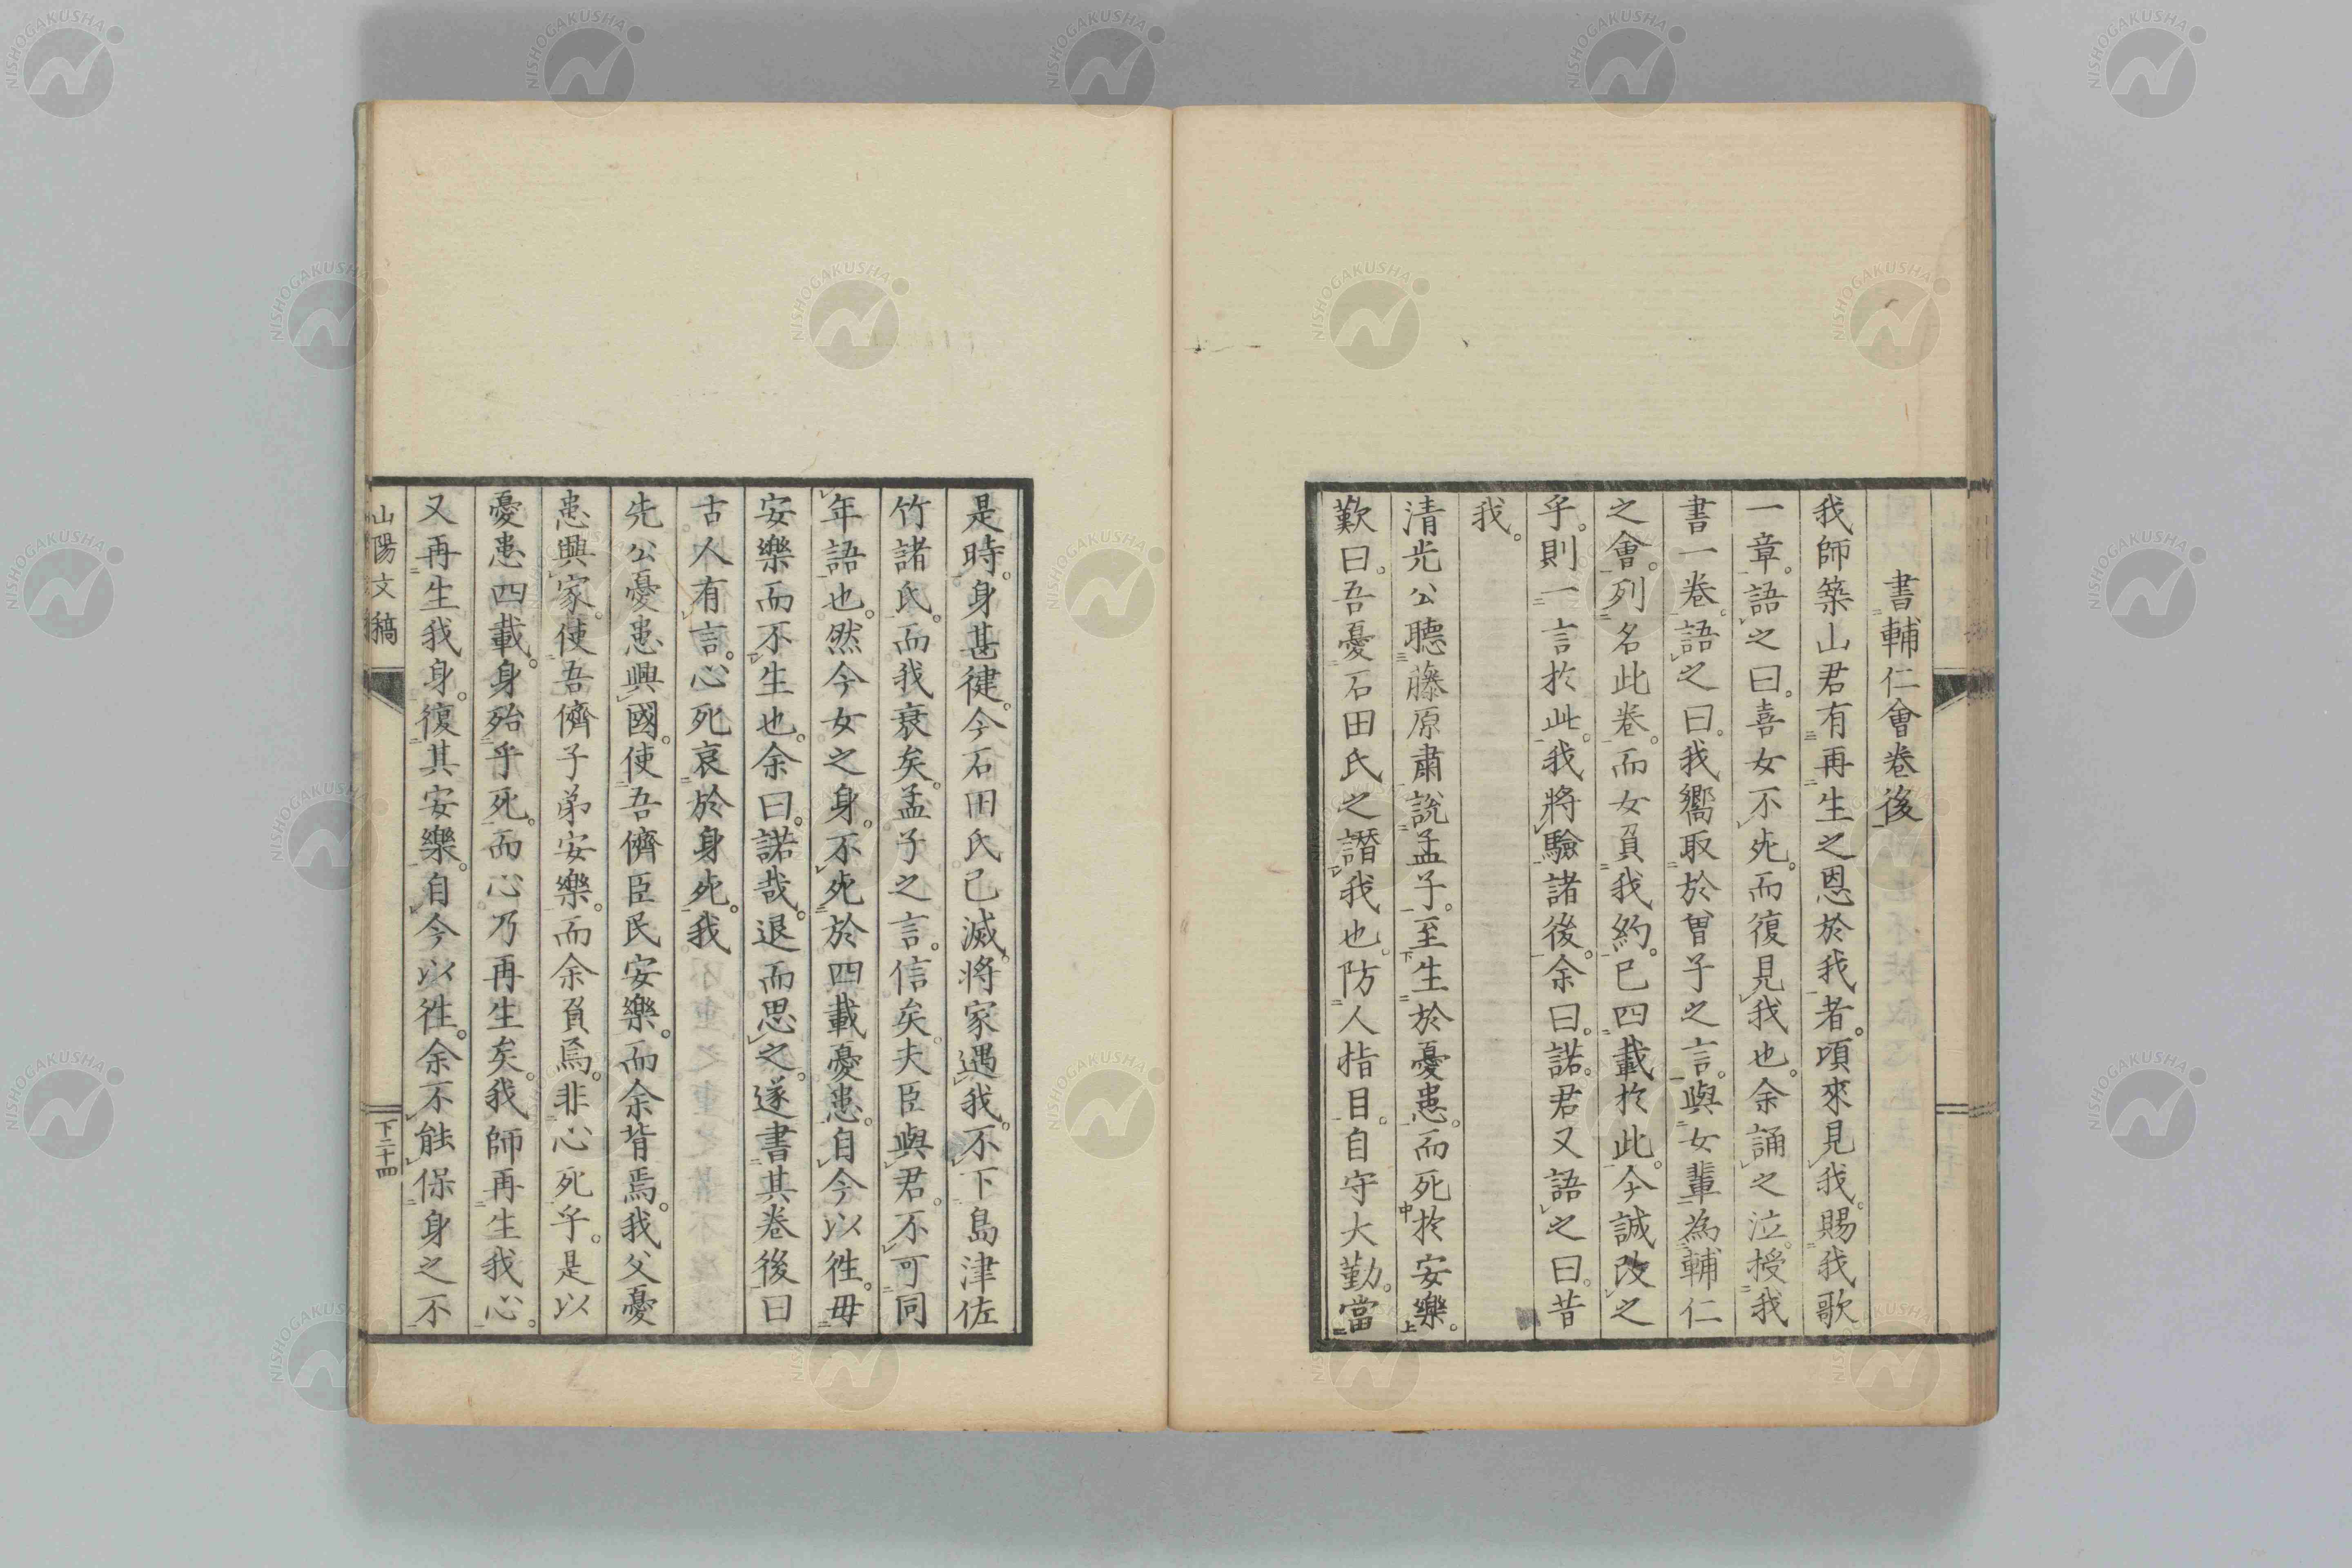 書輔仁會卷後
我師築山君有再生之恩於我者。頃來見我。賜我歌
一章。語之曰。喜女不死。而復見我也。余誦之泣。授我
書一卷。語之曰。我嚮取於曾子之言。與女輩為輔仁
之會。列名此卷。而女負我約。已四載於此。今誠改之
乎。則一言於此。我將驗諸後。余曰。諾。君又語之曰。昔
我。
清光公聽藤原肅說孟子。至生於憂患。而死於安樂。
歎曰。吾憂石田氏之譖我也。防人指目。自守大勤。當
是時。身甚健。今石田氏已滅。將家遇我。不下島津佐
竹諸氏。而我衰矣。孟子之言。信矣。夫臣與君。不可同
年語也。然今女之身。不死於四載憂患。自今以徃。毋
安樂而不生也。余曰。諾哉。退而思之。遂書其卷後曰
古人有言。心死哀於身死。我
先公憂患興國。使吾儕臣民安樂。而余背焉。我父憂
患興家。使吾儕子弟安樂。而余負焉。非心死乎。是以
憂患四載。身殆乎死。而心乃再生矣。我師再生我心。
又再生我身。復其安樂。自今以徃。余不能保身之不
山陽文稿
下二十四
NISHOGAKUSHA